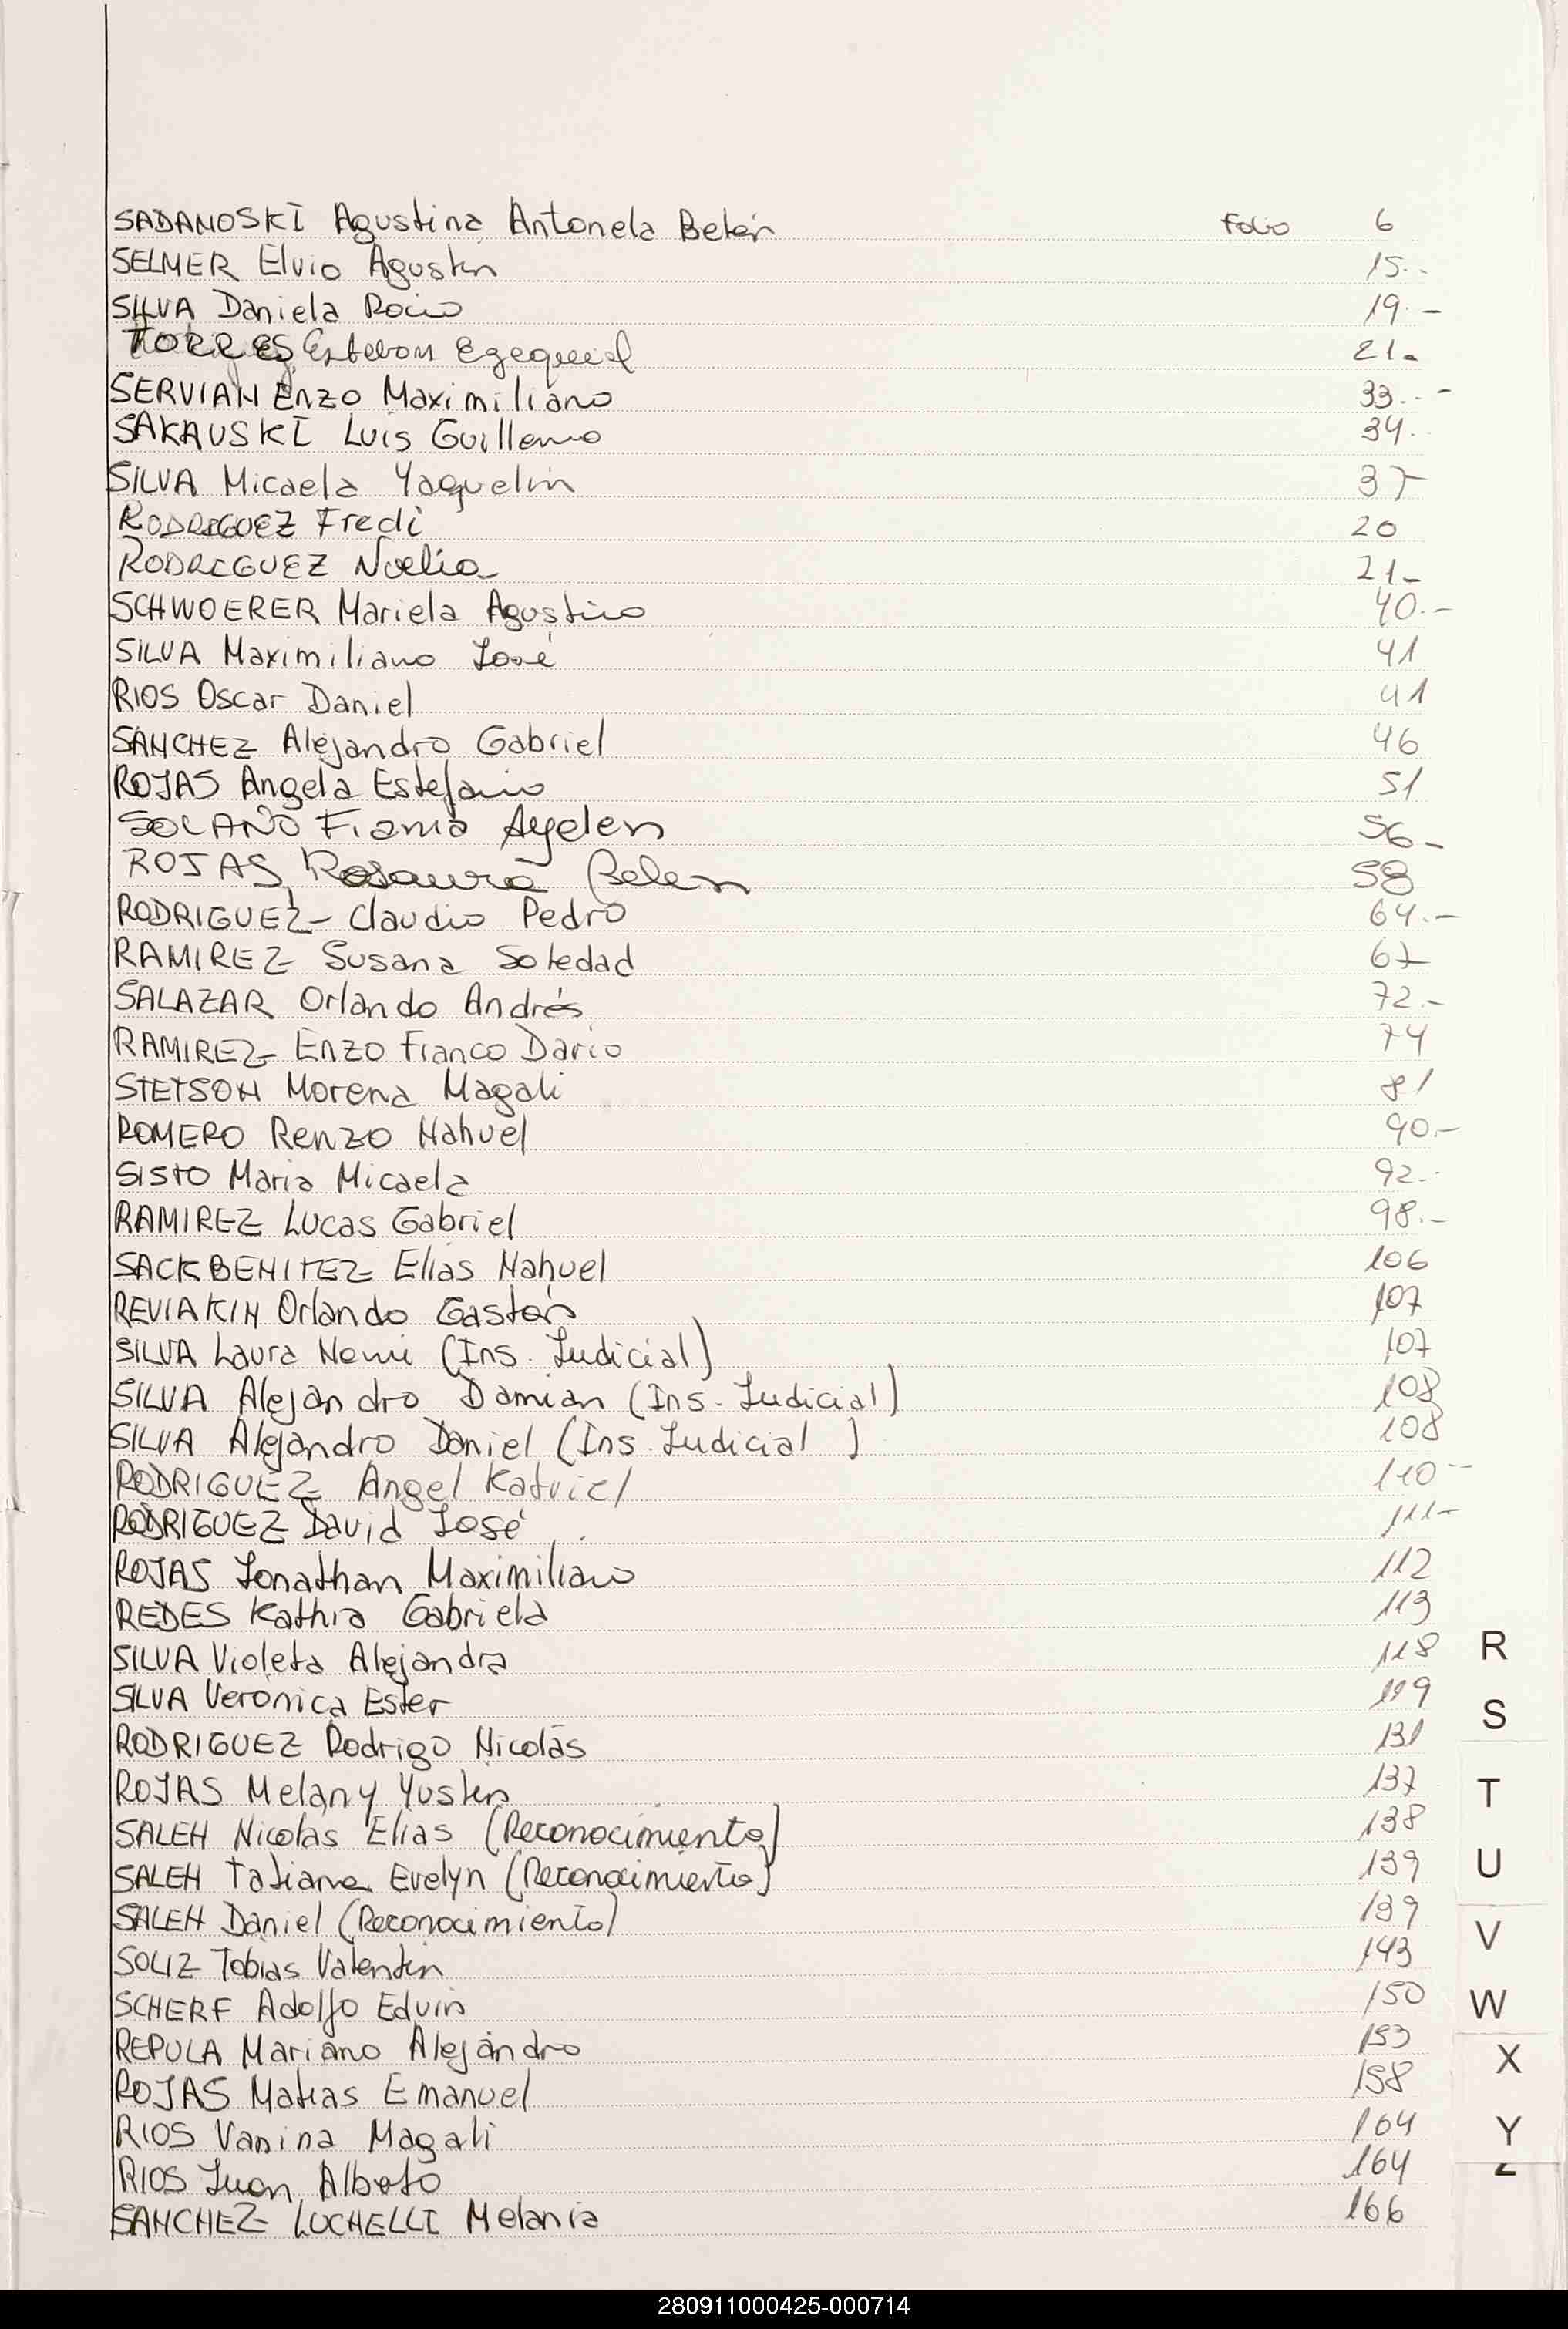 SADANOSKI Agustina Antonela Belén Folio 6
SELMER Elvio Agustin 15.-
SILVA Daniela Rocio 19.-
TORRES Esteban Ezequiel 21.
SERVIAN Enzo Maximiliano 33.-
SAKAUSKI Luis Guillermo 34.
SILVA Micaela Yaquelin 37
RODRIGUEZ Fredi 20
RODRIGUEZ Noelia 21-
SCHWOERER Mariela Agustina 40.-
SILVA Maximiliano José 41
RIOS Oscar Daniel 41
SANCHEZ Alejandro Gabriel 46
ROJAS Angela Estefania 51
SOLANO Fiama Ayelen 56-
ROJAS, Rosaura Belen 58
RODRIGUEZ- Claudio Pedro 64.-
RAMIREZ Susana Soledad 67
SALAZAR Orlando Andrés 72.-
RAMIREZ Enzo Franco Dario 74
STETSON Morena Magali 81
ROMERO Renzo Nahuel 90.-
SISTO Maria Micaela 92.-
RAMIREZ Lucas Gabriel 98.-
SACK BENITEZ Elias Nahuel 106
REVIAKIN Orlando Gastón 107
SILVA Laura Nemi (Ins. Judicial) 107
SILVA Alejandro Damian (Ins. Judicial) 108
SILVA Alejandro Daniel (Ins. Judicial) 108
RODRIGUEZ Angel Katriel 110--
RODRIGUEZ David José 111-
ROJAS Jonathan Maximiliano 112
REDES Kathia Gabriela 113
SILVA Violeta Alejandra 118 R
SILVA Verónica Ester 119 S
RODRIGUEZ Rodrigo Nicolás 131
ROJAS Melany Yusten 137 T
SALEH Nicolas Elias (Reconocimiento) 138
SALEH Tatiana Evelyn (Reconocimiento) 139 U
SALEH Daniel (Reconocimiento) 139 V
SOLIZ Tobias Valentin 143
SCHERF Adolfo Edvin 150 W
REPULA Mariano Alejandro 153 X
ROJAS Matias Emanuel 158
RIOS Vanina Magali 164 Y
RIOS Juan Alberto 164 Z
SANCHEZ LUCHELLI Melania 166
280911000425-000714